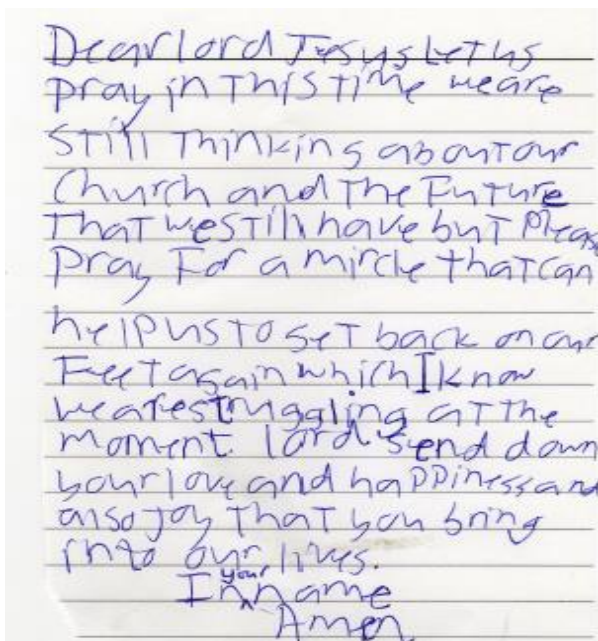 Dear lord Jesus Let us
pray in This Time we are
Still Thinking about our
Church and The Future
That we still have but please
pray For a mircle that can
help us to get back on our
Feet again which I know
we are struggling at the
moment. lord send down
your love and happiness and
also joy that you bring
into our lives.
In your name
Amen